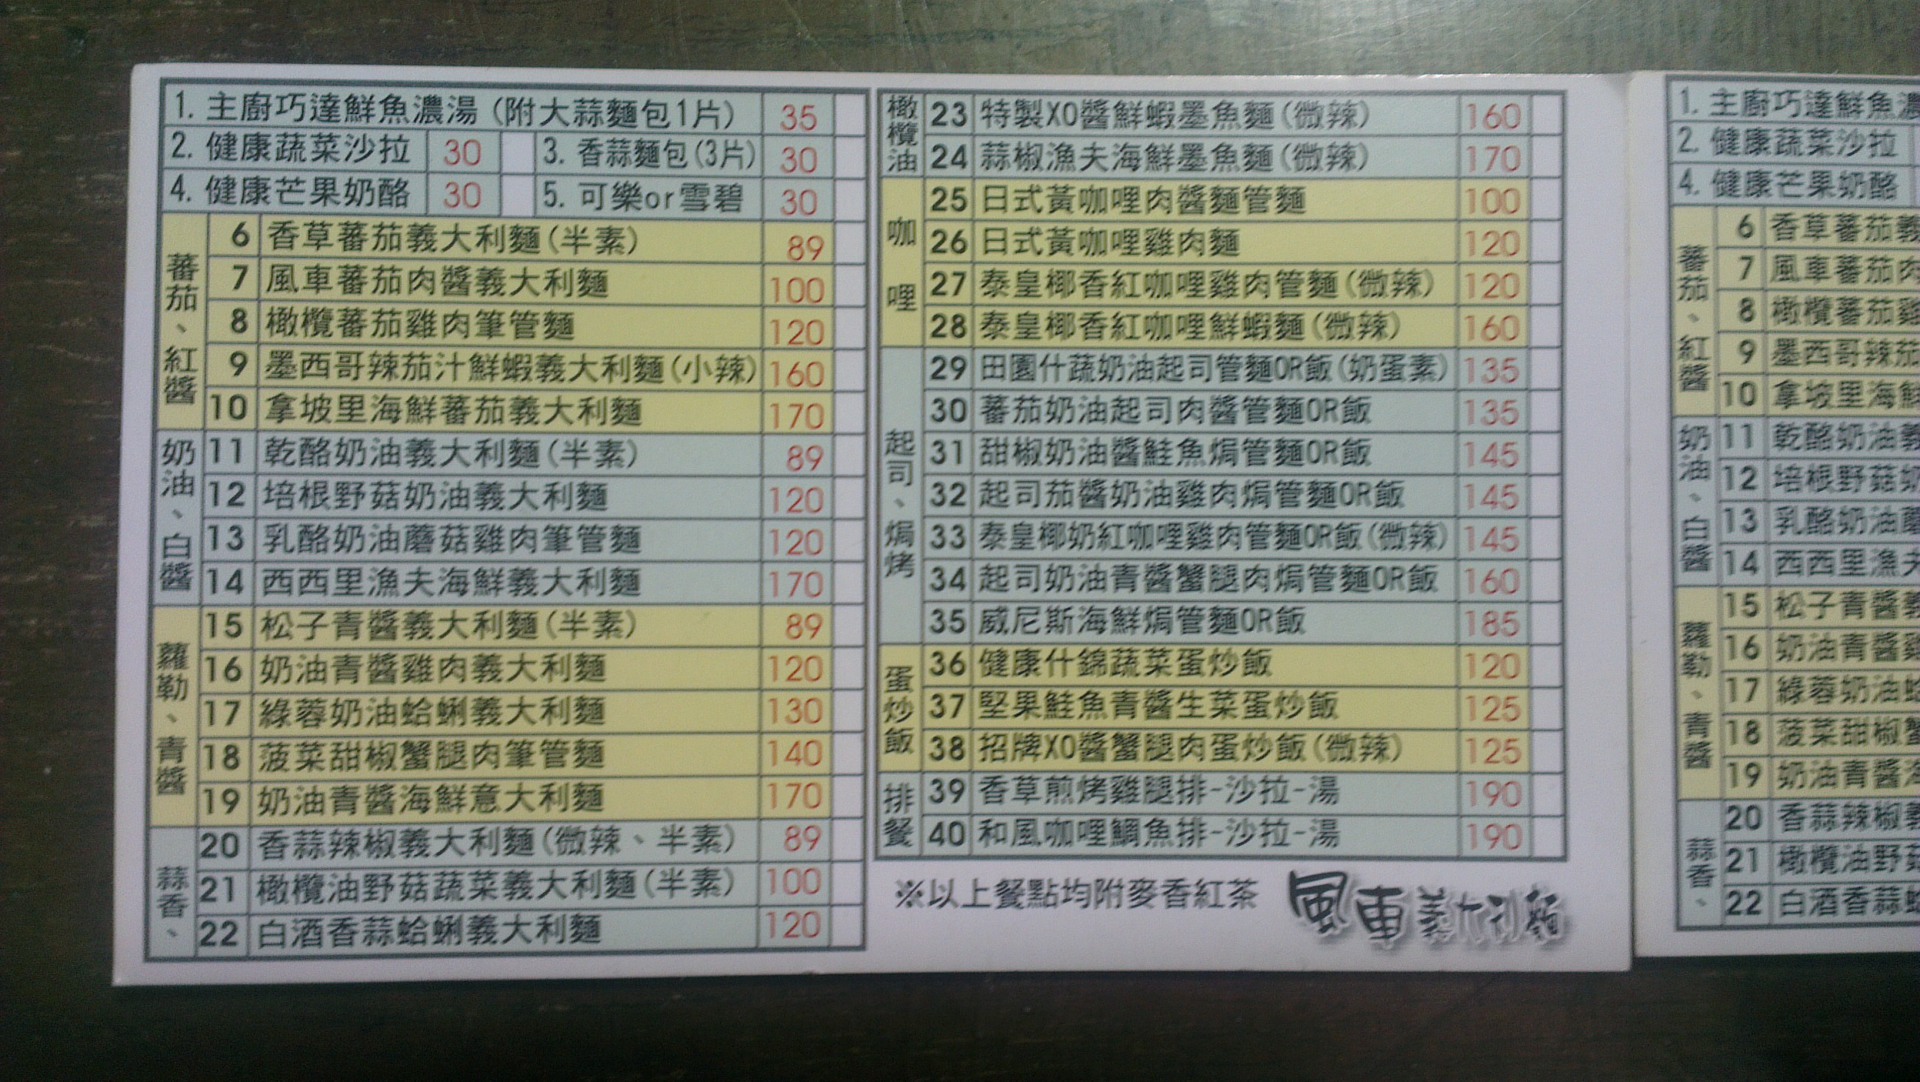 1. 主廚巧達鮮魚濃湯 (附大蒜麵包1片) 35
2. 健康蔬菜沙拉 30 3. 香蒜麵包(3片) 30
4. 健康芒果奶酪 30 5. 可樂or雪碧 30
蕃茄、紅醬
6 香草蕃茄義大利麵(半素) 89
7 風車蕃茄肉醬義大利麵 100
8 橄欖蕃茄雞肉筆管麵 120
9 墨西哥辣茄汁鮮蝦義大利麵(小辣) 160
10 拿坡里海鮮蕃茄義大利麵 170
奶油、白醬
11 乾酪奶油義大利麵(半素) 89
12 培根野菇奶油義大利麵 120
13 乳酪奶油蘑菇雞肉筆管麵 120
14 西西里漁夫海鮮義大利麵 170
蘿勒、青醬
15 松子青醬義大利麵(半素) 89
16 奶油青醬雞肉義大利麵 120
17 綠蓉奶油蛤蜊義大利麵 130
18 菠菜甜椒蟹腿肉筆管麵 140
19 奶油青醬海鮮意大利麵 170
蒜香、
20 香蒜辣椒義大利麵(微辣、半素) 89
21 橄欖油野菇蔬菜義大利麵(半素) 100
22 白酒香蒜蛤蜊義大利麵 120
橄欖油
23 特製XO醬鮮蝦墨魚麵(微辣) 160
24 蒜椒漁夫海鮮墨魚麵(微辣) 170
咖哩
25 日式黃咖哩肉醬麵管麵 100
26 日式黃咖哩雞肉麵 120
27 泰皇椰香紅咖哩雞肉管麵(微辣) 120
28 泰皇椰香紅咖哩鮮蝦麵(微辣) 160
起司、焗烤
29 田園什蔬奶油起司管麵OR飯(奶蛋素) 135
30 蕃茄奶油起司肉醬管麵OR飯 135
31 甜椒奶油醬鮭魚焗管麵OR飯 145
32 起司茄醬奶油雞肉焗管麵OR飯 145
33 泰皇椰奶紅咖哩雞肉管麵OR飯(微辣) 145
34 起司奶油青醬蟹腿肉焗管麵OR飯 160
35 威尼斯海鮮焗管麵OR飯 185
蛋炒飯
36 健康什錦蔬菜蛋炒飯 120
37 堅果鮭魚青醬生菜蛋炒飯 125
38 招牌XO醬蟹腿肉蛋炒飯(微辣) 125
排餐
39 香草煎烤雞腿排-沙拉-湯 190
40 和風咖哩鯛魚排-沙拉-湯 190
※以上餐點均附麥香紅茶
風車義大利麵
1. 主廚巧達鮮魚
2. 健康蔬菜沙拉
4. 健康芒果奶酪
蕃茄、紅醬
6 香草蕃茄
7 風車蕃茄
8 橄欖蕃茄
9 墨西哥辣茄
10 拿坡里海
奶油、白醬
11 乾酪奶油
12 培根野菇
13 乳酪奶油
14 西西里漁夫
蘿勒、青醬
15 松子青醬
16 奶油青醬
17 綠蓉奶油
18 菠菜甜椒
19 奶油青醬
蒜香、
20 香蒜辣椒
21 橄欖油野
22 白酒香蒜